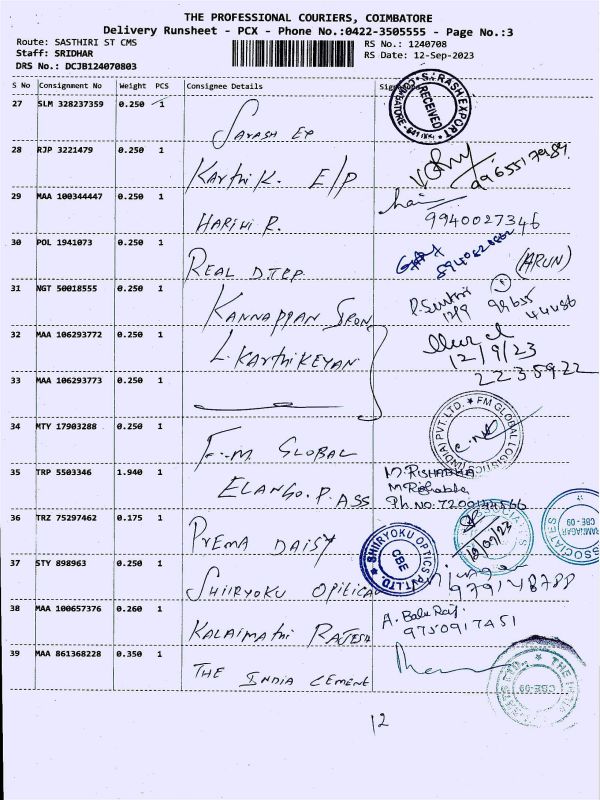 THE PROFESSIONAL COURIERS, COIMBATORE
Delivery Runsheet - PCX - Phone No.:0422-3505555 - Page No.:3
Route: SASTHIRI ST CMS
Staff: SRIDHAR
DRS No.: DCJB124070803
RS No.: 1240708
RS Date: 12-Sep-2023
S No Consignment No Weight PCS Consignee Details
27 SLM 328237359 0.250 1 Sarash Ex
S. RASH EXPORT
RECEIVED
28 RJP 3221479 0.250 1 Karthi K. E/P
9965517989
29 MAA 100344447 0.250 1 HARINI R.
9940027346
30 POL 1941073 0.250 1 REAL D.T.P.P
(ARUN)
31 NGT 50018555 0.250 1 KANNAPPAN IRON
12/9
44486
32 MAA 106293772 0.250 1 L. KARTHIKEYAN
12/9/23
2238922
33 MAA 106293773 0.250 1
34 MTY 17903288 0.250 1 F.M. GLOBAL
FM GLOBAL LOGISTICS (INDIA) PVT. LTD.
35 TRP 5503346 1.940 1 ELANGO. P. ASS
M. RISHABHA
M Rishabha
Ph NO: 7200144566
36 TRZ 75297462 0.175 1 PREMA DAISY
12/09/23
RAMNAGAR
CBE - 09
ASSOCIATES
37 STY 898963 0.250 1 SHIIRYOKU OPITICA
SHIIRYOKU OPTICS PVT. LTD.
CBE
979148788
38 MAA 100657376 0.260 1 KALAIMATHI RAJESH
A. Babu Raj.
9750917451
39 MAA 861368228 0.350 1 THE INDIA CEMENT
CBE-09
12